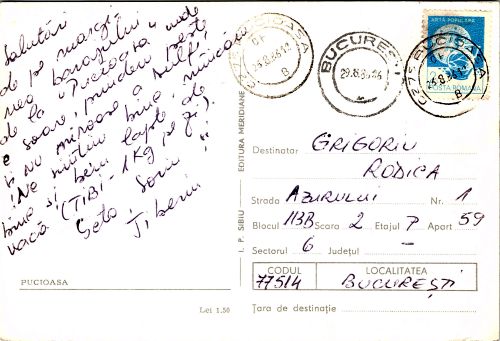 Salutări
de pe margi-
nea barajului
de la Pucioasa unde
e soare, prindem pește
și nu miroase a sulf!
Ne simțim bine, mâncăm
bine și bem lapte de
vacă (TIBI - 1 Kg pe zi).
Geta, Sorin,
Tiberiu
PUCIOASA
Lei 1.50
I. P. SIBIU
EDITURA MERIDIANE
0275 PUCIOASA
BUCUREȘTI
29.8.86
0275 PUCIOASA
ARTĂ POPULARĂ
POSTA ROMANA
Destinatar GRIGORIU
RODICA
Strada AZURULUI Nr. 1
Blocul 113B Scara 2 Etajul 7 Apart 59
Sectorul 6 Județul -
CODUL 77514
LOCALITATEA BUCUREȘTI
Țara de destinație